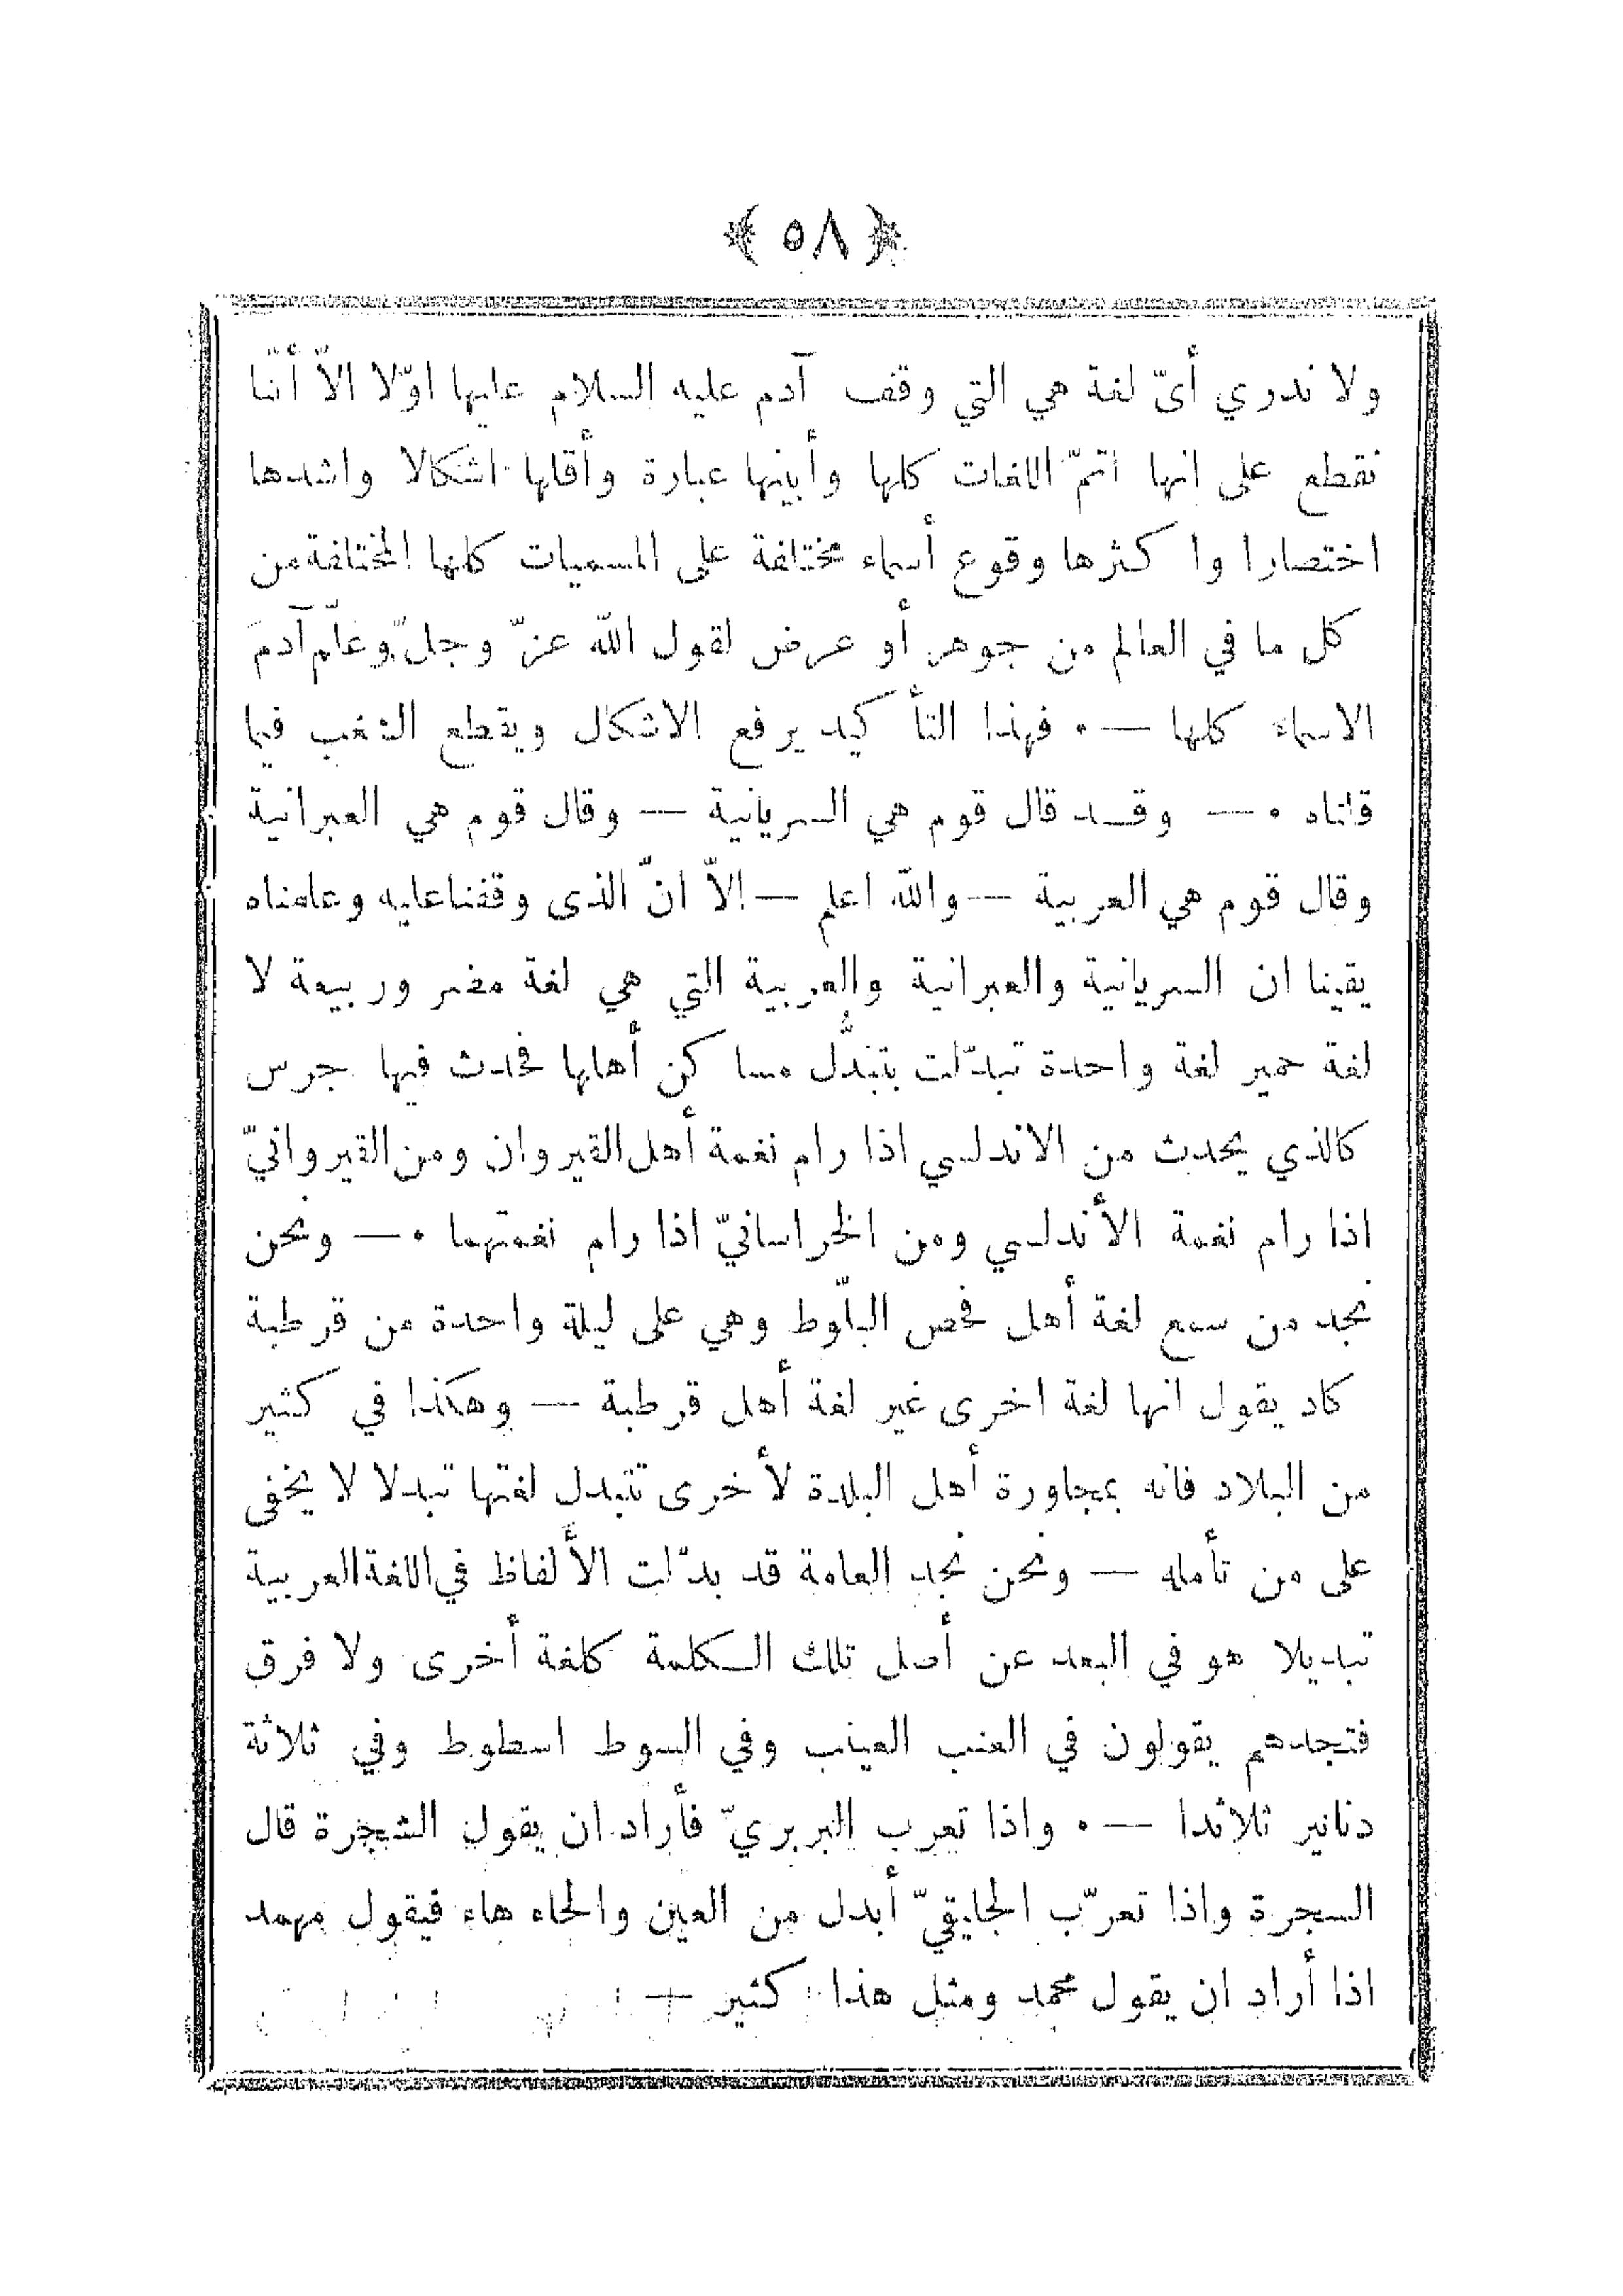 ﴿ ٥٨ ﴾
ولا ندري أىّ لغة هي التي وقف آدم عليه السلام عليها اوّلا الاّ أنّنا
نقطع على انها اتمّ اللغات كلها وأبينها عبارة وأقلها اشكالا واشدها
اختصارا وا كثرها وقوع أسماء مختلفة على المسميات كلها المختلفة من
كل ما في العالم من جوهر أو عرض لقول الله عزّ وجلّ وعلّم آدمَ
الاسماء كلها — . فهذا التأ كيد يرفع الاشكال ويقطع الشغب فيما
قلناه . — وقد قال قوم هي السريانية — وقال قوم هي العبرانية
وقال قوم هي العربية — والله اعلم — الاّ انّ الذى وقفنا عليه وعلمناه
يقينا ان السريانية والعبرانية والعربية التي هي لغة مضر وربيعة لا
لغة حمير لغة واحدة تبدّلت بتبدُّل مسا كن أهلها فحدث فيها جرس
كالذي يحدث من الاندلسي اذا رام نغمة أهل القيروان ومن القيروانيّ
اذا رام نغمة الأندلسي ومن الخراسانيّ اذا رام نغمتهما . — ونحن
نجد من سمع لغة أهل فحص البلّوط وهي على ليلة واحدة من قرطبة
كاد يقول انها لغة اخرى غير لغة أهل قرطبة — وهكذا في كثير
من البلاد فانه بمجاورة أهل البلدة لأخرى تتبدل لغتها تبدلا لا يخفى
على من تأمله — ونحن نجد العامة قد بدّلت الألفاظ في اللغة العربية
تبديلا هو في البعد عن أصل تلك الكلمة كلغة أخرى ولا فرق
فتجدهم يقولون في العنب العينب وفي السوط اسطوط وفي ثلاثة
دنانير ثلاثدا — . واذا تعرب البربريّ فأراد ان يقول الشجرة قال
السجرة واذا تعرّب الجليقيّ أبدل من العين والحاء هاء فيقول مهمد
اذا أراد ان يقول محمد ومثل هذا كثير —